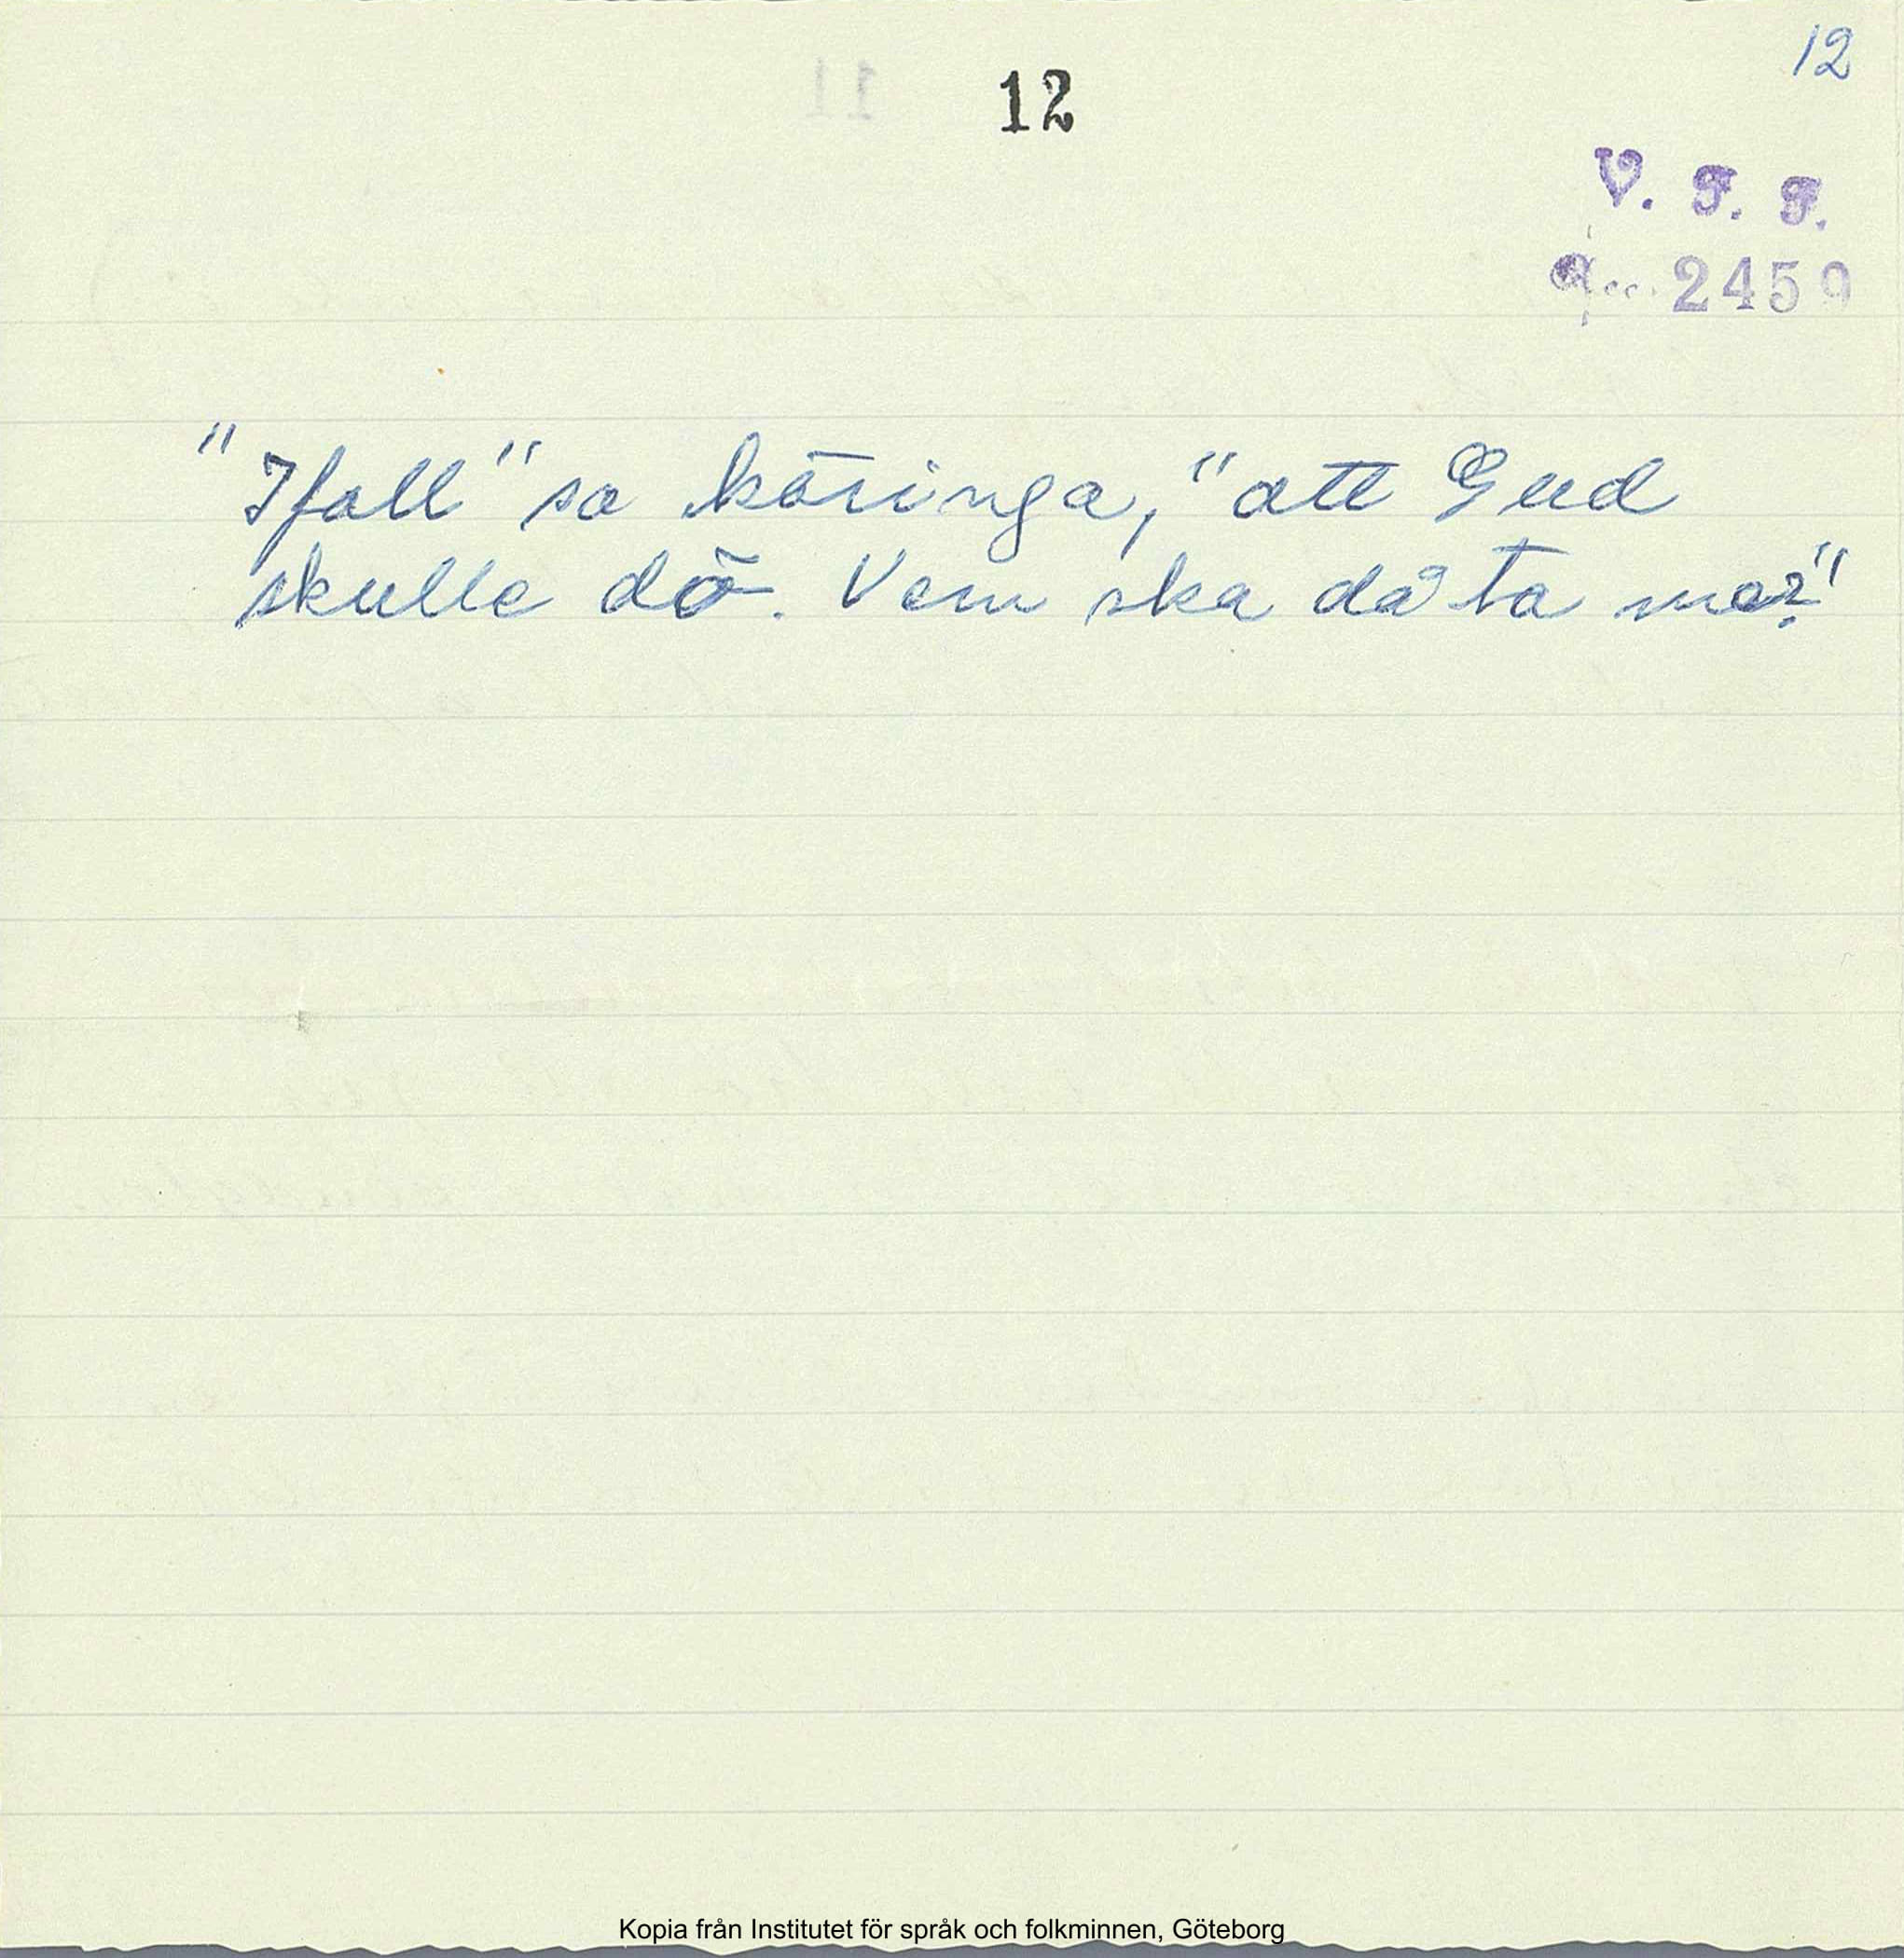 12
12
V. F. F.
Acc. 2459
"Ifall" sa käringa, "att Gud
skulle dö. Vem ska då ta mä?"
Kopia från Institutet för språk och folkminnen, Göteborg